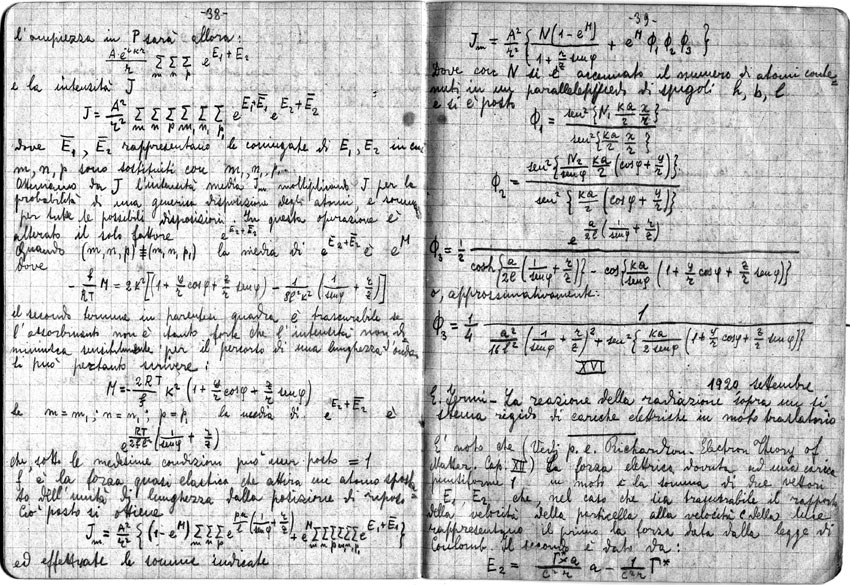 -38-
l'ampiezza in P sarà allora:
A e^{ikr}/r ∑_m ∑_n ∑_p e^{E₁+E₂}
e la intensità J
J = A²/r² ∑_m ∑_n ∑_p ∑_{m₁} ∑_{n₁} ∑_{p₁} e^{E₁+Ē₁} e^{E₂+Ē₂}
dove Ē₁, Ē₂ rappresentano le coniugate di E₁, E₂ in cui
m, n, p sono sostituiti con m₁, n₁, p₁.
Otteniamo da J l'intensità media J_m moltiplicando J per la
probabilità di una generica disposizione degli atomi, e
per tutte le possibili disposizioni. In questa operazione è
alterato il solo fattore e^{E₂+Ē₂}
Quando (m, n, p) ≢ (m₁ n₁ p₁) la media di e^{E₂+Ē₂} è e^M
dove
M = 2K² [(1 + y/r cosφ + z/r senφ) - (1/senφ + r/z)]
il secondo termine in parentesi quadra è trascurabile se
l'assorbimento non è tanto forte che l'intensità non di
minuisca sensibilmente per il percorso di una lunghezza d'onda.
Si può pertanto scrivere:
M = -2RT/f K² (1 + y/r cosφ + z/r senφ)
Se m = m₁; n = n₁; p = p₁ la media di e^{E₂+Ē₂} è
che sotto le medesime condizioni può esser posto = 1
f è la forza quasi elastica che attira un atomo sposta=
to dell'unità di lunghezza dalla posizione di riposo
Ciò posto si ottiene
J_m = A²/r² {(1-e^M) ∑_m ∑_n ∑_p e^{pa/l (1/senφ + r/z)} + e^M ∑∑∑∑∑∑ e^{E₁+Ē₁}}
ed effettuate le somme indicate
-39-
J_m = A²/r² { N(1-e^M) / (1 + r/z senφ) + e^M ϕ₁ ϕ₂ ϕ₃ }
Dove con N si è accennato il numero di atomi conte=
nuti in un parallelepipedo di spigoli h, b, l
e si è posto
ϕ₁ = sen²{N₁ ka/2 x/r} / sen²{ka/2 x/r}
ϕ₂ = sen²{N₂/senφ ka/2 (cosφ + y/r)} / sen²{ka/2 (cosφ + y/r)}
ϕ₃ = 1/2 e^{a/2l (1/senφ + r/z)} / cosh{a/2l (1/senφ + r/z)} - cos{ka/senφ (1 + y/r cosφ + z/r senφ)}
o, approssimativamente:
ϕ₃ = 1/4 1 / a²/16l² (1/senφ + r/z)² + sen²{ka/2senφ (1 + y/r cosφ + z/r senφ)}
XVI
1920 settembre
E. Fermi - La reazione della radiazione sopra un si
stema rigido di cariche elettriche in moto traslatorio
E' noto che (Vedi p. e. Richardson. Electron Theory of
Matter. Cap. XII) la forza elettrica dovuta ad una carica
puntiforme 1 in moto è la somma di due vettori
E₁ E₂ che, nel caso che sia trascurabile il rapporto
della velocità della particella alla velocità c della luce
rappresentano il primo la forza data dalla legge di
Coulomb. Il secondo è dato da:
E₂ = Γ×a/c²r a - 1/c²r Γ*